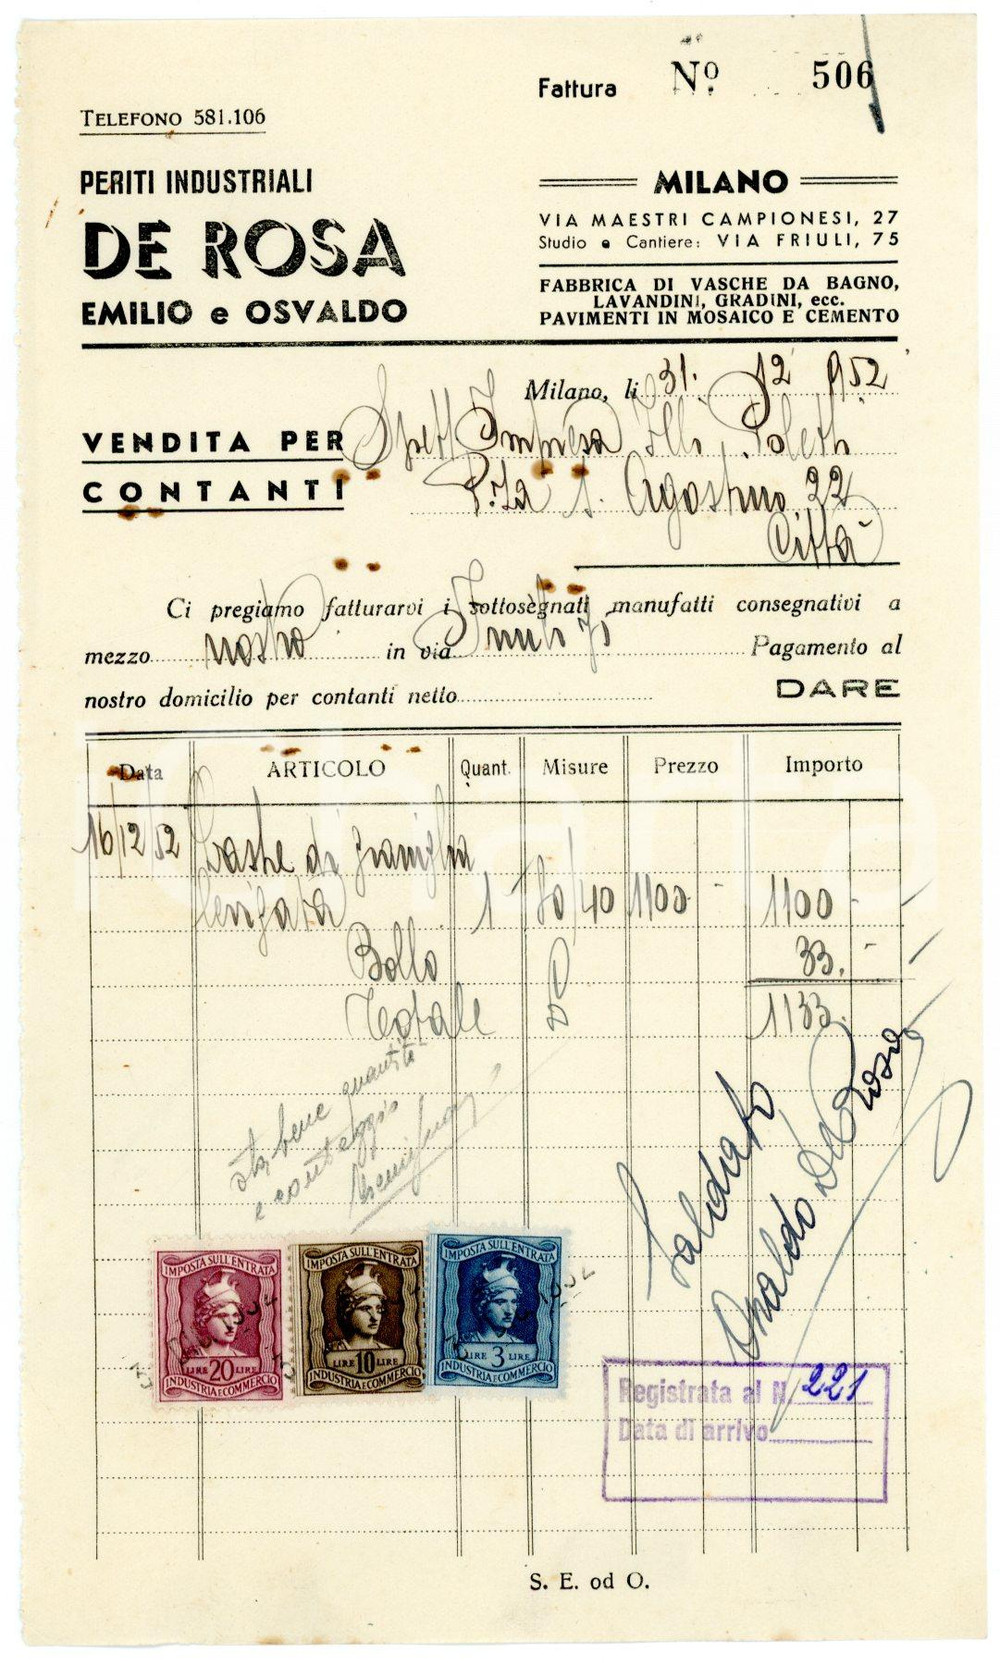 Fattura Nº 506
TELEFONO 581.106
PERITI INDUSTRIALI
DE ROSA
EMILIO e OSVALDO
MILANO
VIA MAESTRI CAMPIONESI, 27
Studio e Cantiere: VIA FRIULI, 75
FABBRICA DI VASCHE DA BAGNO,
LAVANDINI, GRADINI, ecc.
PAVIMENTI IN MOSAICO E CEMENTO
Milano, li 31. 12 952
VENDITA PER
CONTANTI
Spett Impresa F.lli Poletti
P.za S. Agostino 22
Città
Ci pregiamo fatturarvi i sottosegnati manufatti consegnativi a
mezzo nostro in via
Pagamento al
nostro domicilio per contanti netto
DARE
Data ARTICOLO Quant. Misure Prezzo Importo
16/12/52 di graniglia
levigata 1 80/40 1100 - 1100 -
Bollo 33. -
Totale 1133.
sta bene quantità
e conteggio
Saldato
Osvaldo De Rosa
IMPOSTA SULL'ENTRATA
LIRE 20 LIRE
INDUSTRIA E COMMERCIO
IMPOSTA SULL'ENTRATA
LIRE 10 LIRE
INDUSTRIA E COMMERCIO
IMPOSTA SULL'ENTRATA
LIRE 3 LIRE
INDUSTRIA E COMMERCIO
Registrata al N. 221
Data di arrivo
S. E. od O.